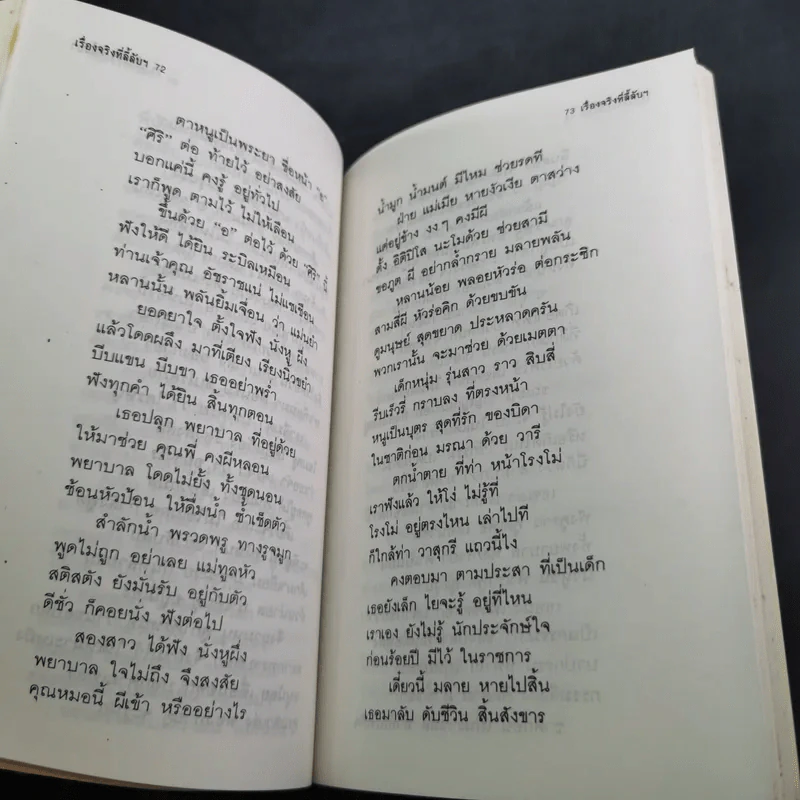 เรื่องจริงที่ลี้ลับฯ 72
ตาหนูเป็นพระยา ชื่อหน้า "อ"
"ศิริ" ต่อ ท้ายไว้ อย่าสงสัย
บอกแค่นี้ คงรู้ อยู่ทั่วไป
เราก็พูด ตามไว้ ไม่ให้เลือน
ขึ้นด้วย "อ" ต่อไว้ ด้วย "ศิริ" นี้
ฟังให้ดี ได้ยิน ระบิลเหมือน
ท่านเจ้าคุณ อัชราชแน่ ไม่แชเชือน
หลานนั้น พลันยิ้มเจื่อน ว่า แม่นยำ
ยอดยาใจ ตั้งใจฟัง นั่งหู ผึ่ง
แล้วโดดผลึง มาที่เตียง เรียงนิ้วขยำ
บีบแขน บีบขา เธออย่าพร่ำ
ฟังทุกคำ ได้ยิน สิ้นทุกตอน
เธอปลุก พยาบาล ที่อยู่ด้วย
ให้มาช่วย คุณพี่ คงผีหลอน
พยาบาล โดดไม่ยั้ง ทั้งชุดนอน
ช้อนหัวป้อน ให้ดื่มน้ำ ซ้ำเช็ดตัว
สำลักน้ำ พรวดพรู ทางรูจมูก
พูดไม่ถูก อย่าเลย แม่ทูลหัว
สติสตัง ยังมั่นรับ อยู่กับตัว
ดีชั่ว ก็คอยนั่ง ฟังต่อไป
สองสาว ได้ฟัง นั่งหูผึ่ง
พยาบาล ใจไม่ถึง จึงสงสัย
คุณหมอนี้ ผีเข้า หรืออย่างไร
73 เรื่องจริงที่ลี้ลับฯ
น้ำมูก น้ำมนต์ มีไหม ช่วยรดที
ฝ่าย แม่เมีย หายงัวเงีย ตาสว่าง
แต่อยู่ข้าง งงๆ คงมีผี
ตั้ง อิติปิโส นะโมด้วย ช่วยสามี
ขอภูต ผี อย่ากล้ำกราย มลายพลัน
หลานน้อย พลอยหัวร่อ ต่อกระซิก
สามสี่ผี หัวร่อคิก ด้วยขบขัน
ดูมนุษย์ สุดขยาด ประหลาดครัน
พวกเรานั้น จะมาช่วย ด้วยเมตตา
เด็กหนุ่ม รุ่นสาว ราว สิบสี่
รีบเร็วรี่ กราบลง ที่ตรงหน้า
หนูเป็นบุตร สุดที่รัก ของบิดา
ในชาติก่อน มรณา ด้วย วารี
ตกน้ำตาย ที่ท่า หน้าโรงโม่
เราฟังแล้ว ให้โง่ ไม่รู้ที่
โรงโม่ อยู่ตรงไหน เล่าไปที
ก็ใกล้ท่า วาสุกรี แถวนี้ไง
คงตอบมา ตามประสา ที่เป็นเด็ก
เธอยังเล็ก ไยจะรู้ อยู่ที่ไหน
เราเอง ยังไม่รู้ นักประจักษ์ใจ
ก่อนร้อยปี มีไว้ ในราชการ
เดี๋ยวนี้ มลาย หายไปสิ้น
เธอมาลับ ดับชีวิน สิ้นสังขาร